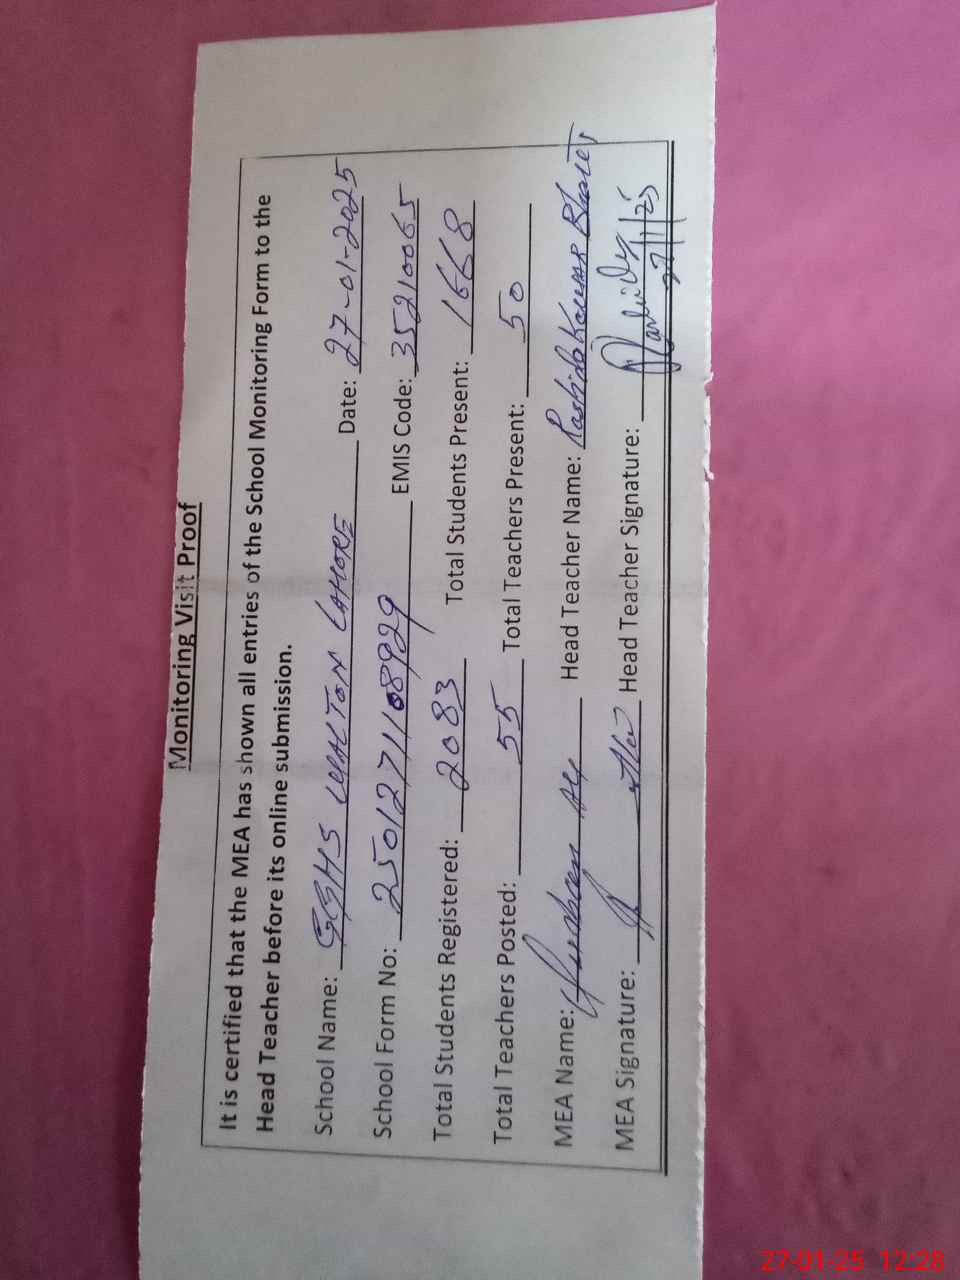 Monitoring Visit Proof
It is certified that the MEA has shown all entries of the School Monitoring Form to the
Head Teacher before its online submission.
School Name: GGHS WALTON LAHORE Date: 27-01-2025
School Form No: 2501271108929 EMIS Code: 35210065
Total Students Registered: 2083 Total Students Present: 1668
Total Teachers Posted: 55 Total Teachers Present: 50
MEA Name: Head Teacher Name: Rashida Kausar
MEA Signature: Head Teacher Signature:
27/1/25
27-01-25 12:28